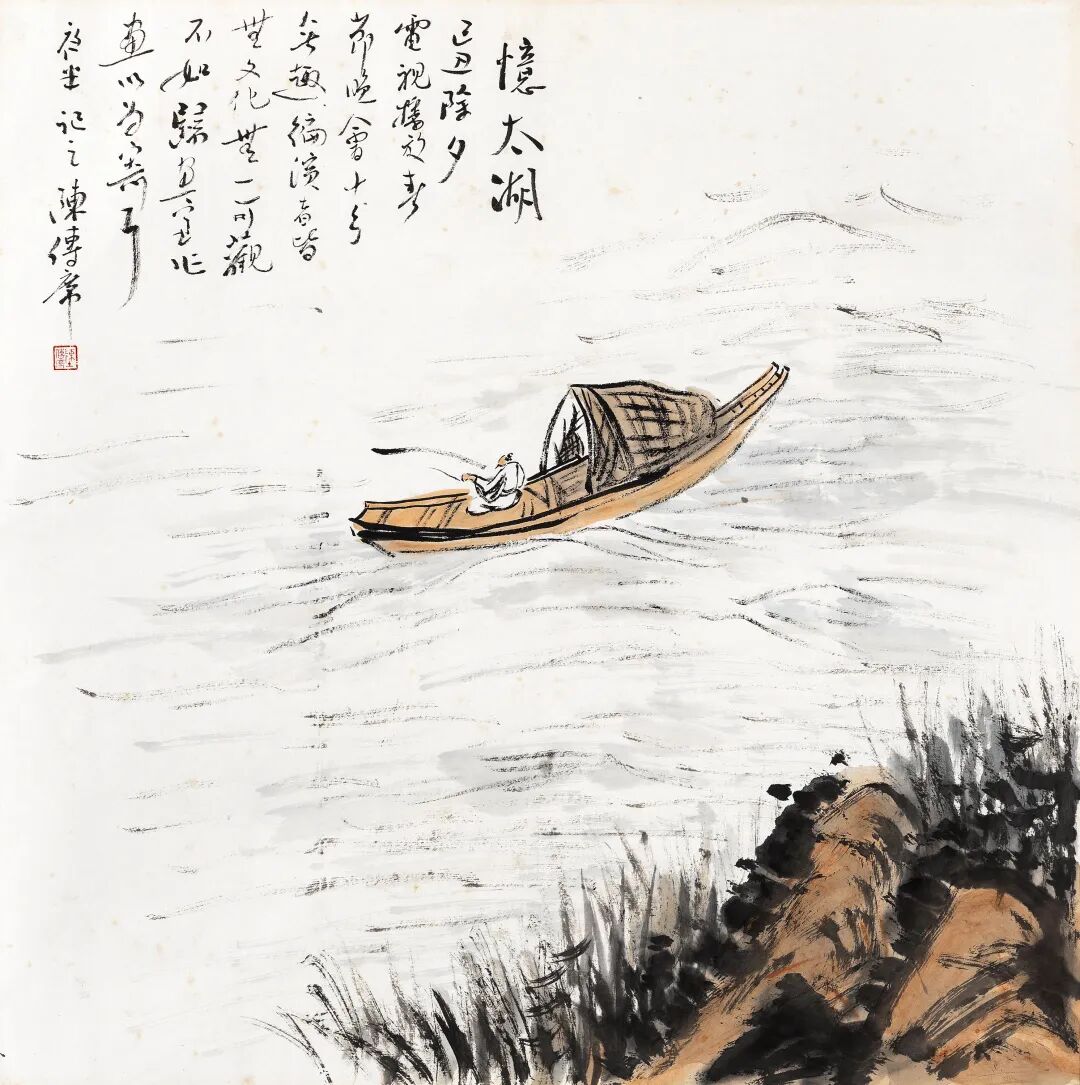 憶太湖
己丑除夕
電視播放春
節晚會十分
無趣編演者皆
無文化無一可觀
不如歸畫室作
畫以為寄耳
夜半記之陳傳席